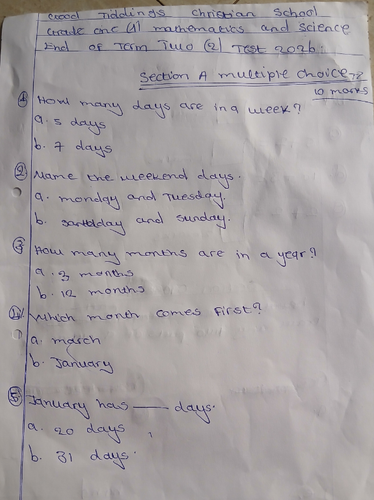 Good Tiddings Christian School
Grade one (1) mathematics and science
End of Term Two (2) Test 2026:
Section A multiple choice
10 marks
① How many days are in a week?
a. 5 days
b. 7 days
② Name the weekend days.
a. monday and Tuesday.
b. and Sunday.
③ How many months are in a year?
a. 3 months
b. 12 months
④ Which month comes first?
a. march
b. January
⑤ January has — days.
a. 20 days
b. 31 days.